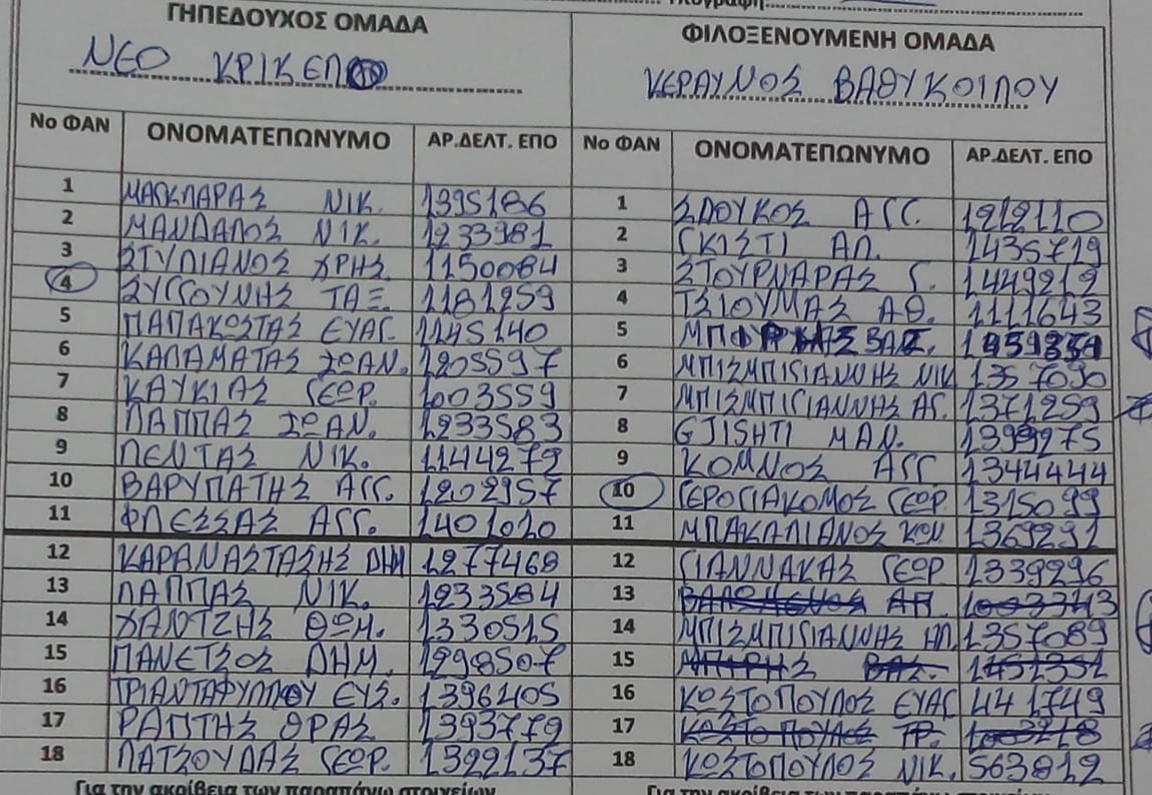 ΓΗΠΕΔΟΥΧΟΣ ΟΜΑΔΑ ΦΙΛΟΞΕΝΟΥΜΕΝΗ ΟΜΑΔΑ
ΝΕΟ ΚΕΡΑΥΝΟΣ ΒΑΘΥΚΟΙΛΟΥ
Νο ΦΑΝ ΟΝΟΜΑΤΕΠΩΝΥΜΟ ΑΡ.ΔΕΛΤ. ΕΠΟ Νο ΦΑΝ ΟΝΟΜΑΤΕΠΩΝΥΜΟ ΑΡ.ΔΕΛΤ. ΕΠΟ
1 ΜΑΣΚΛΑΡΑΣ ΝΙΚ. 1395186 1 ΣΔΟΥΚΟΣ ΑΓΓ. 1212110
2 ΜΑΝΔΑΛΟΣ ΝΙΚ. 1233981 2 ΓΚΙΣΤΙ ΑΛ. 1435719
3 ΣΤΥΛΙΑΝΟΣ ΧΡΗΣ 1150084 3 ΣΤΟΥΡΝΑΡΑΣ Γ. 1449219
4 ΖΥΓΓΟΥΝΗΣ ΤΑΞ. 1181259 4 ΤΣΙΟΥΜΑΣ ΑΘ. 1111643
5 ΠΑΠΑΚΩΣΤΑΣ ΕΥΑΓ. 1145140 5
6 ΚΑΛΑΜΑΤΑΣ ΙΩΑΝ. 1205597 6 ΜΠΙΣΜΠΙΓΙΑΝΝΗΣ ΝΙΚ 1357090
7 ΚΑΥΚΙΑΣ ΓΕΩΡ. 1003559 7 ΜΠΙΣΜΠΙΓΙΑΝΝΗΣ ΑΓ. 1371259
8 ΛΑΠΠΑΣ ΙΩΑΝ. 1233583 8 GJISHTI ΜΑΝ. 1399275
9 ΠΕΝΤΑΣ ΝΙΚ. 1144279 9 ΚΟΜΝΟΣ ΑΓΓ 1344444
10 ΒΑΡΥΠΑΤΗΣ ΑΓΓ. 1202957 10 ΓΕΡΟΓΙΑΚΟΜΟΣ ΓΕΩΡ. 1315099
11 ΦΛΕΣΣΑΣ ΑΓΓ. 1401010 11 ΜΠΑΚΑΛΙΑΝΟΣ ΚΩΝ. 1369291
12 ΚΑΡΑΝΑΣΤΑΣΗΣ ΔΗΜ 1277468 12 ΓΙΑΝΝΑΚΑΣ ΓΕΩΡ 1339296
13 ΛΑΠΠΑΣ ΝΙΚ. 1233584 13
14 ΧΑΛΤΖΗΣ ΘΩΜ. 1330515 14 ΜΠΙΣΜΠΙΓΙΑΝΝΗΣ ΑΠ. 1357089
15 ΠΑΝΕΤΣΟΣ ΔΗΜ. 1298507 15
16 ΤΡΙΑΝΤΑΦΥΛΛΟΥ ΕΥΣ. 1396405 16 ΚΩΣΤΟΠΟΥΛΟΣ ΕΥΑΓ 441749
17 ΡΑΠΤΗΣ ΘΡΑΣ 1393779 17 ΚΩΣΤΟΠΟΥΛΟΣ ΤΡ. 1003218
18 ΛΑΤΣΟΥΔΑΣ ΓΕΩΡ. 1322137 18 ΚΩΣΤΟΠΟΥΛΟΣ ΝΙΚ. 563812
Για την ακρίβεια των παραπάνω στοιχείων